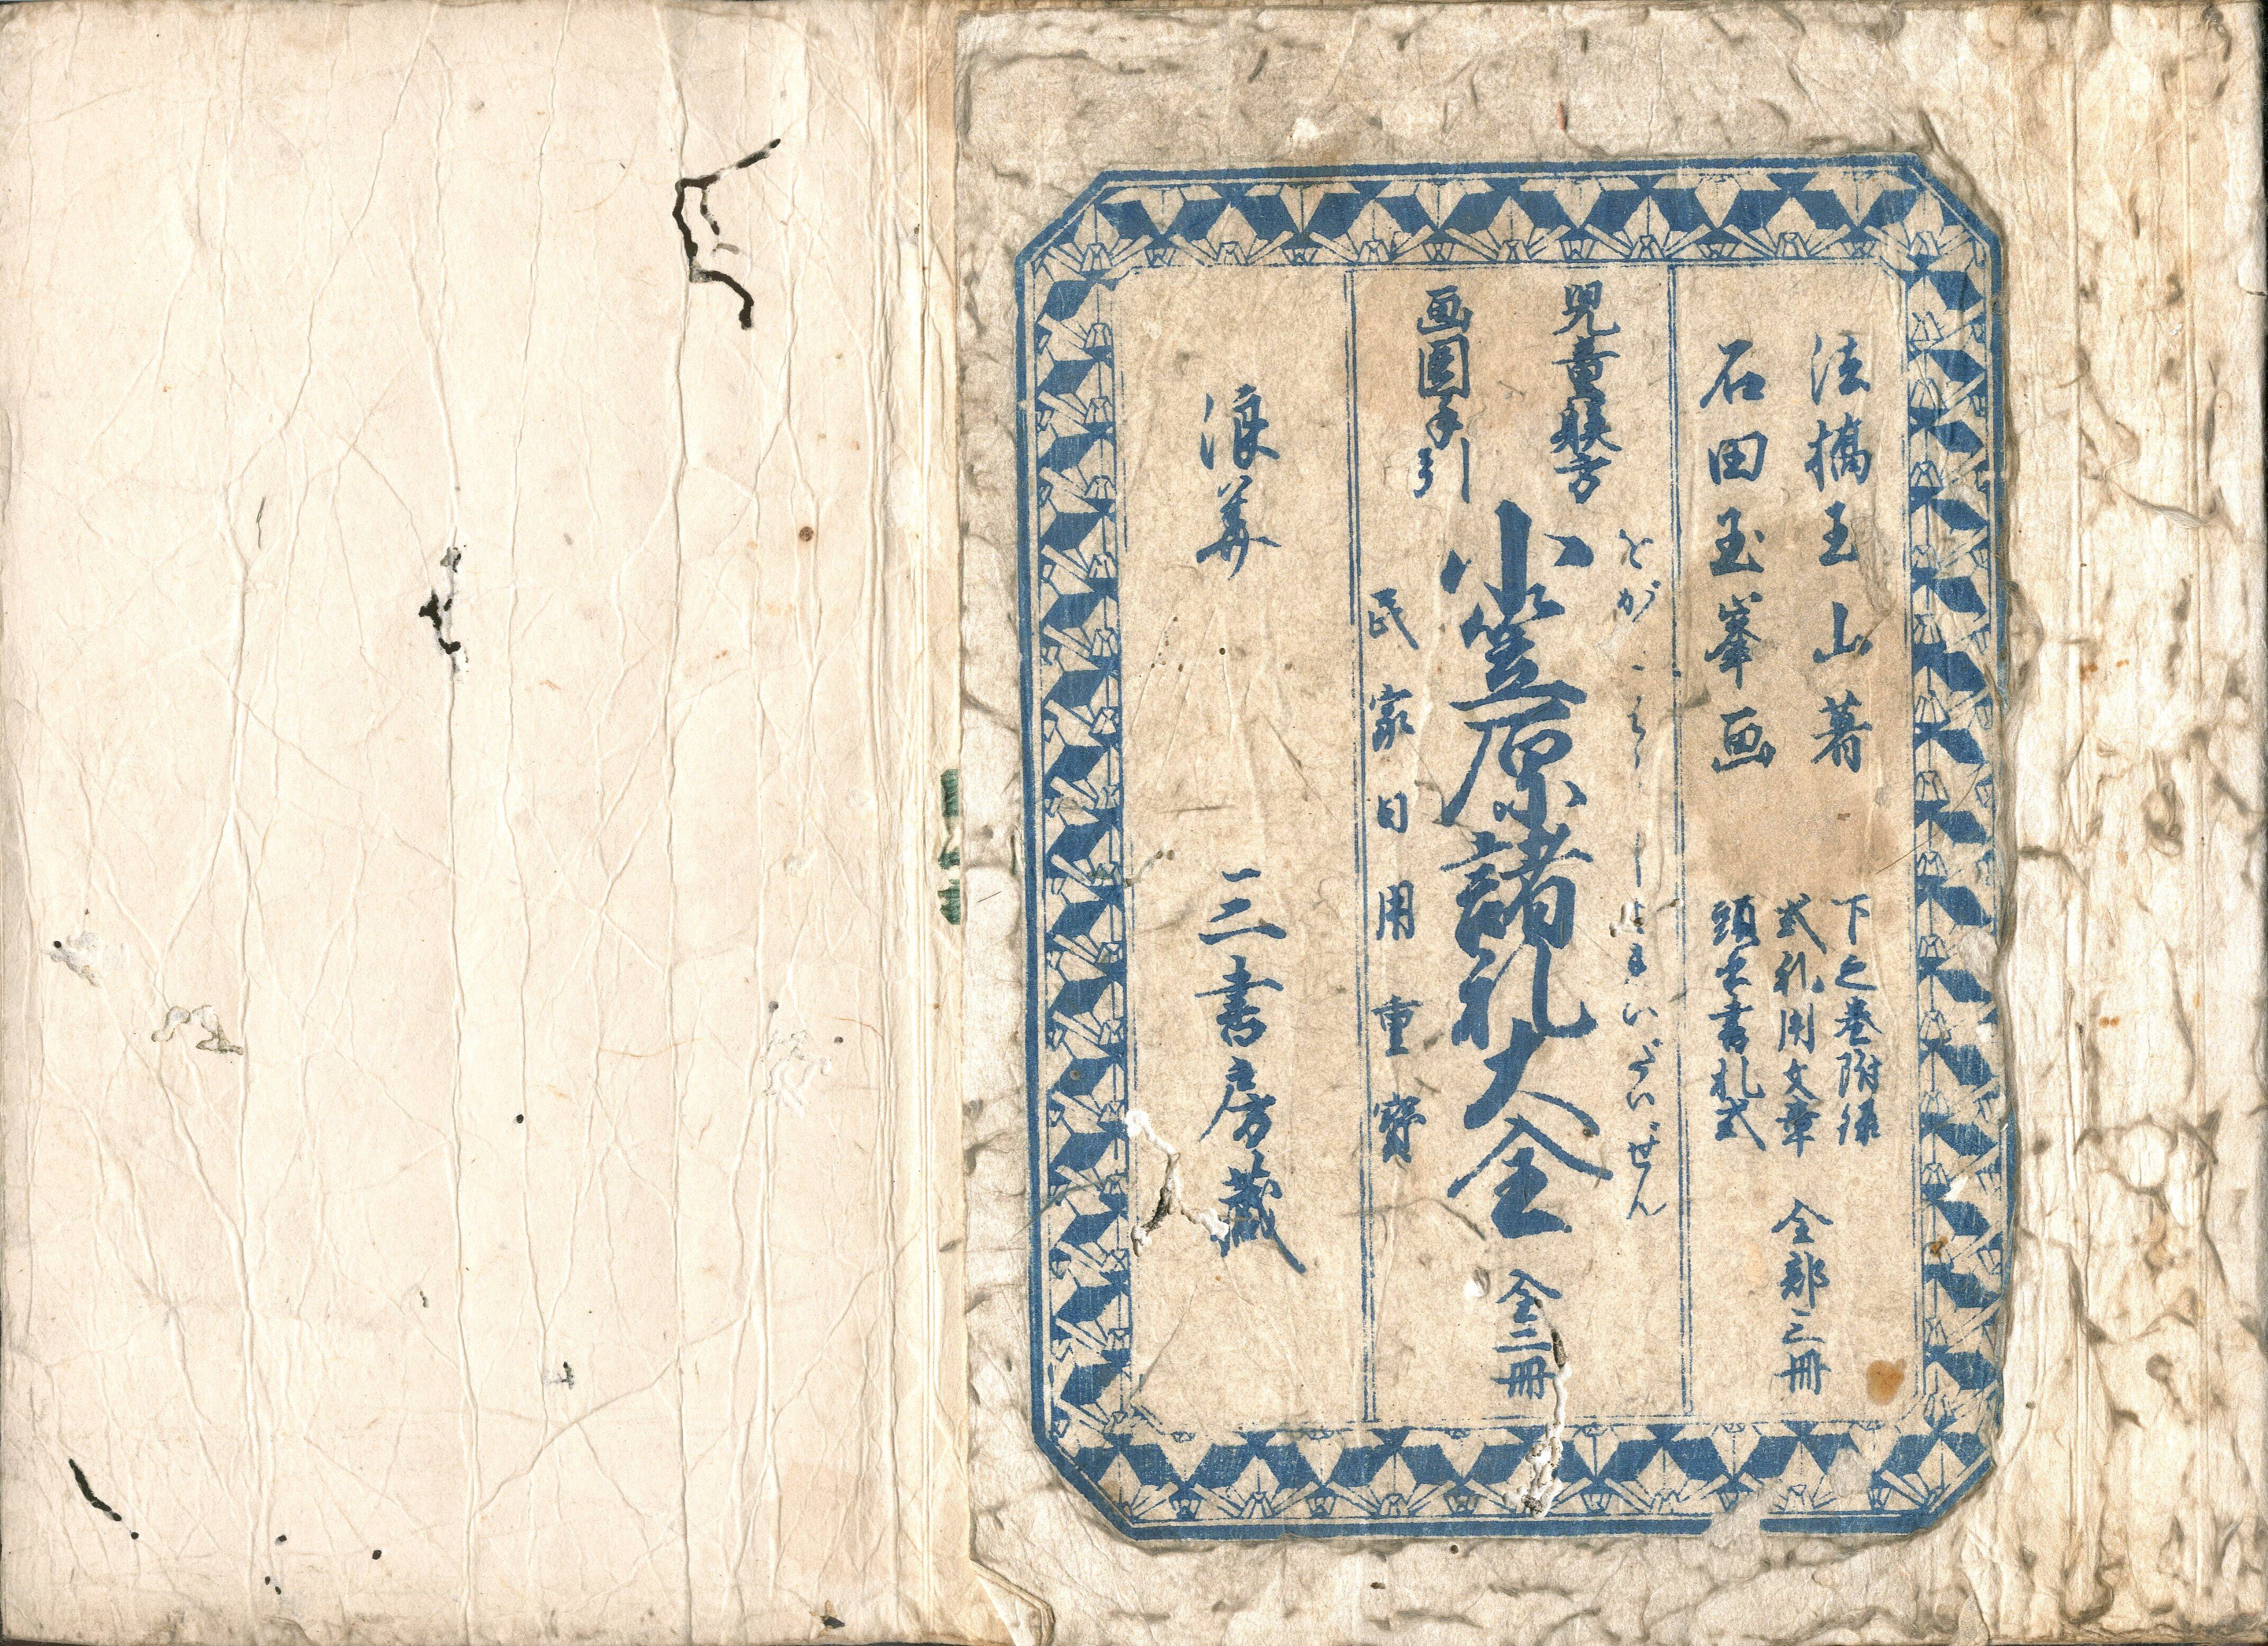 法橋玉山著
石田玉峯画
下之巻附録
式礼用文章
頭書書札式
全部三冊
児童躾方
画図手引
をがさはらしよれいだいぜん
小笠原諸礼大全
全三冊
民家日用重宝
浪華
三書房蔵